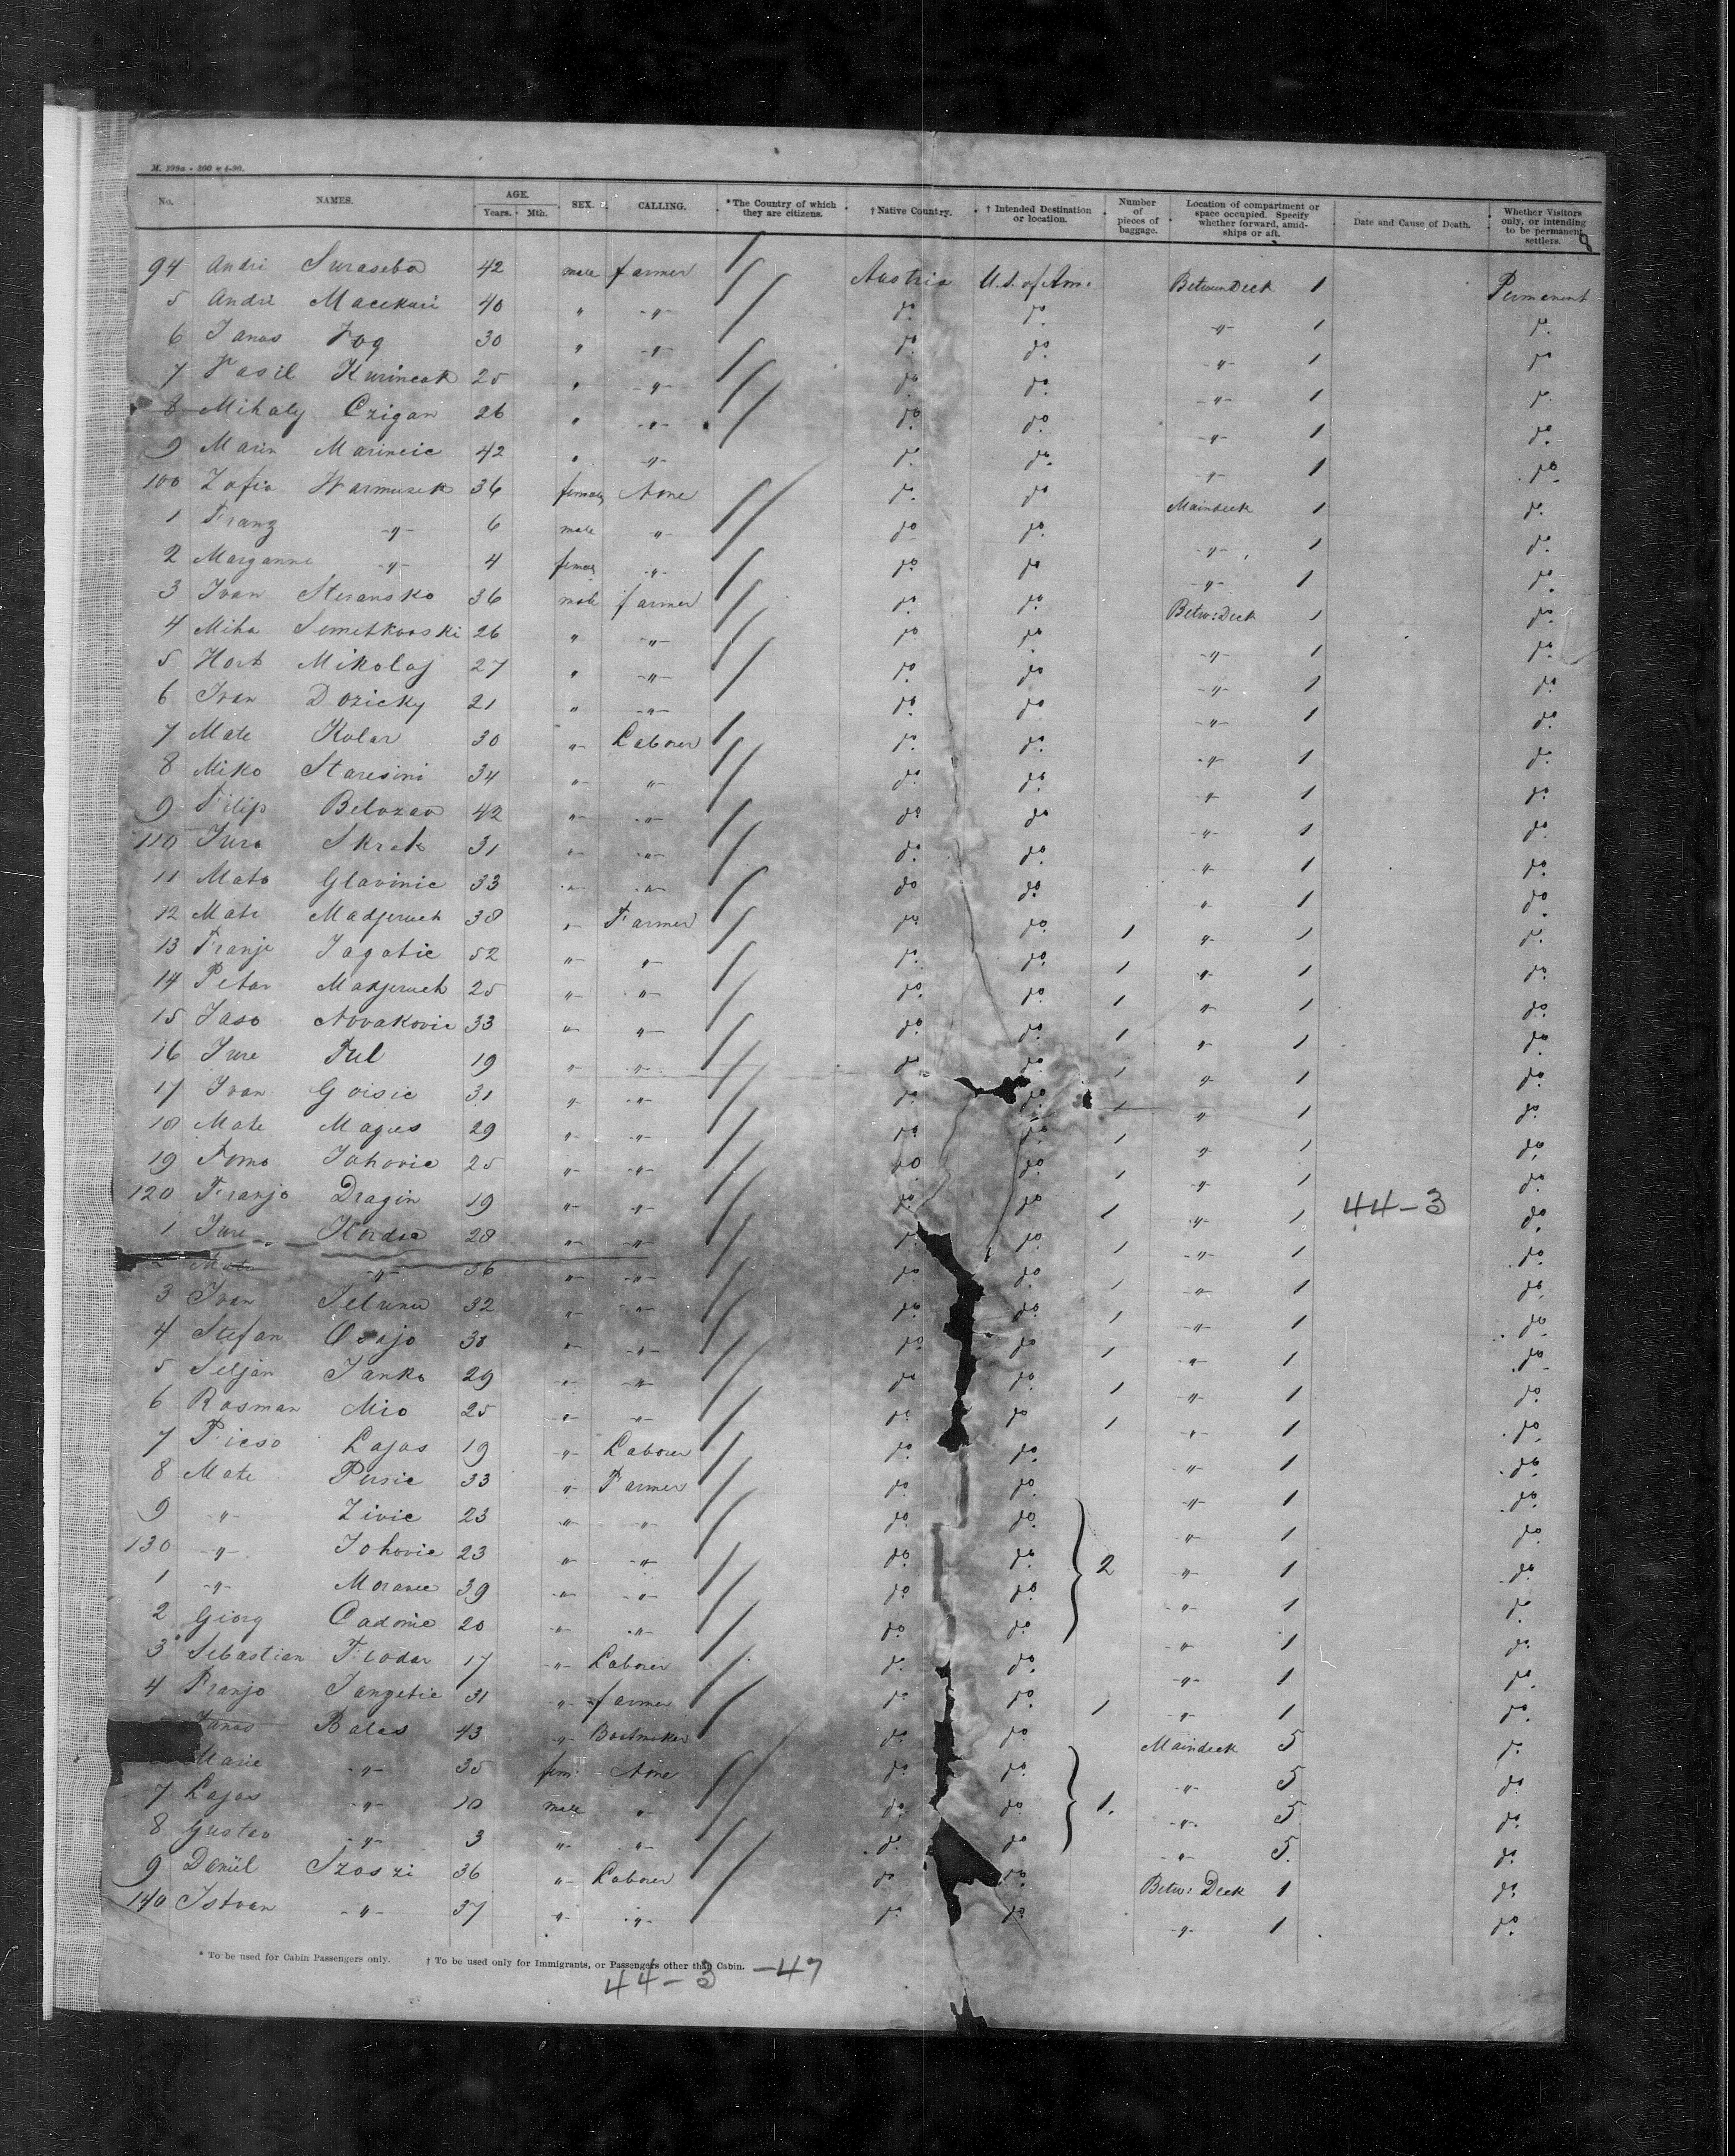 M. 198a - 300 w 4-90.
No. NAMES. AGE. Years. Mth. SEX. CALLING. *The Country of which they are citizens. † Native Country. † Intended Destination or location. Number of pieces of baggage. Location of compartment or space occupied. Specify whether forward, amidships or aft. Date and Cause of Death. Whether Visitors only, or intending to be permanent settlers.
94 Andri 42 male farmer Austria U.S. of Am. Between Deck 1 Permanent
5 Andri 40 " -"- do. do. -"- 1 do.
6 Janos 30 " -"- do. do. -"- 1 do.
7 Vasil Kurincak 25 " -"- do. do. -"- 1 do.
8 Mihaly Czigan 26 " -"- do. do. -"- 1 do.
9 Marin Marincic 42 " -"- do. do. -"- 1 do.
100 Zofia Warmuzek 36 female None do. do. Maindeck 1 do.
1 Franz -"- 6 male -"- do. do. -"- 1 do.
2 Maryanne -"- 4 female -"- do. do. -"- 1 do.
3 Ivan Steransko 36 male farmer do. do. Betw: Deck 1 do.
4 Miha Semetkovski 26 " -"- do. do. -"- 1 do.
5 Hort Mikolaj 27 " -"- do. do. -"- 1 do.
6 Ivan Dozicky 21 " -"- do. do. -"- 1 do.
7 Mate Kolar 30 -"- Laborer do. do. -"- 1 do.
8 Miko Staresini 34 -"- -"- do. do. -"- 1 do.
9 Filip Belozar 42 -"- -"- do. do. -"- 1 do.
110 Juro Skrak 31 -"- -"- do. do. -"- 1 do.
11 Mato Glavinic 33 -"- -"- do. do. " 1 do.
12 Mate Madjeruch 38 -"- Farmer do. do. 1 -"- 1 do.
13 Franje Jagatic 52 -"- " do. do. 1 -"- 1 do.
14 Petar Madjeruch 25 -"- -"- do. do. 1 -"- 1 do.
15 Jaso Novakovic 33 -"- -"- do. do. 1 -"- 1 do.
16 Jure Pul 19 -"- -"- do. do. 1 -"- 1 do.
17 Ivan Goisic 31 -"- -"- do. do. 1 " 1 do.
18 Mate Magus 29 -"- -"- do. do. 1 -"- 1 do.
19 Tomo Johovic 25 -"- -"- do. do. 1 -"- 1 do.
120 Franjo Dragin 19 -"- -"- do. do. 1 -"- 1 44-3 do.
1 Jure Kordic 28 -"- -"- do. do. 1 -"- 1 do.
Mato -"- 36 -"- -"- do. do. 1 -"- 1 do.
3 Ivan 32 -"- -"- do. do. 1 -"- 1 do.
4 Stefan Osojo -"- -"- do. do. 1 -"- 1 do.
5 Seljan Janko 29 -"- -"- do. do. 1 -"- 1 do.
6 Rosman Mio 25 -"- -"- do. do. 1 -"- 1 do.
7 Lajos 19 -"- Laborer do. do. -"- 1 do.
8 Mate Pusic 33 -"- Farmer do. do. -"- 1 do.
9 -"- Zivic 23 -"- -"- do. do. " 1 do.
130 -"- Johovic 23 -"- -"- do. do. 2 " 1 do.
1 -"- Moravec 39 -"- -"- do. do. -"- 1 do.
2 Giorg Cadonic 20 -"- -"- do. do. -"- 1 do.
3 Sebastian Flodar 17 -"- Laborer do. do. -"- 1 do.
4 Franjo Jangetic 31 -"- farmer do. do. 1 -"- 1 do.
Janos Balas 43 -"- Bootmaker do. do. Maindeck 5 do.
Marie -"- 35 fem: None do. do. -"- 5 do.
7 Lajos -"- 10 male " do. do. 1. -"- 5 do.
8 Gustav -"- 3 -"- -"- do. do. -"- 5. do.
9 Daniel Szoszi 36 -"- Laborer do. do. Betw: Deck 1 do.
140 Istvan -"- 37 -"- -"- do. do. -"- 1 do.
* To be used for Cabin Passengers only. † To be used only for Immigrants, or Passengers other than Cabin.
44-3 -47